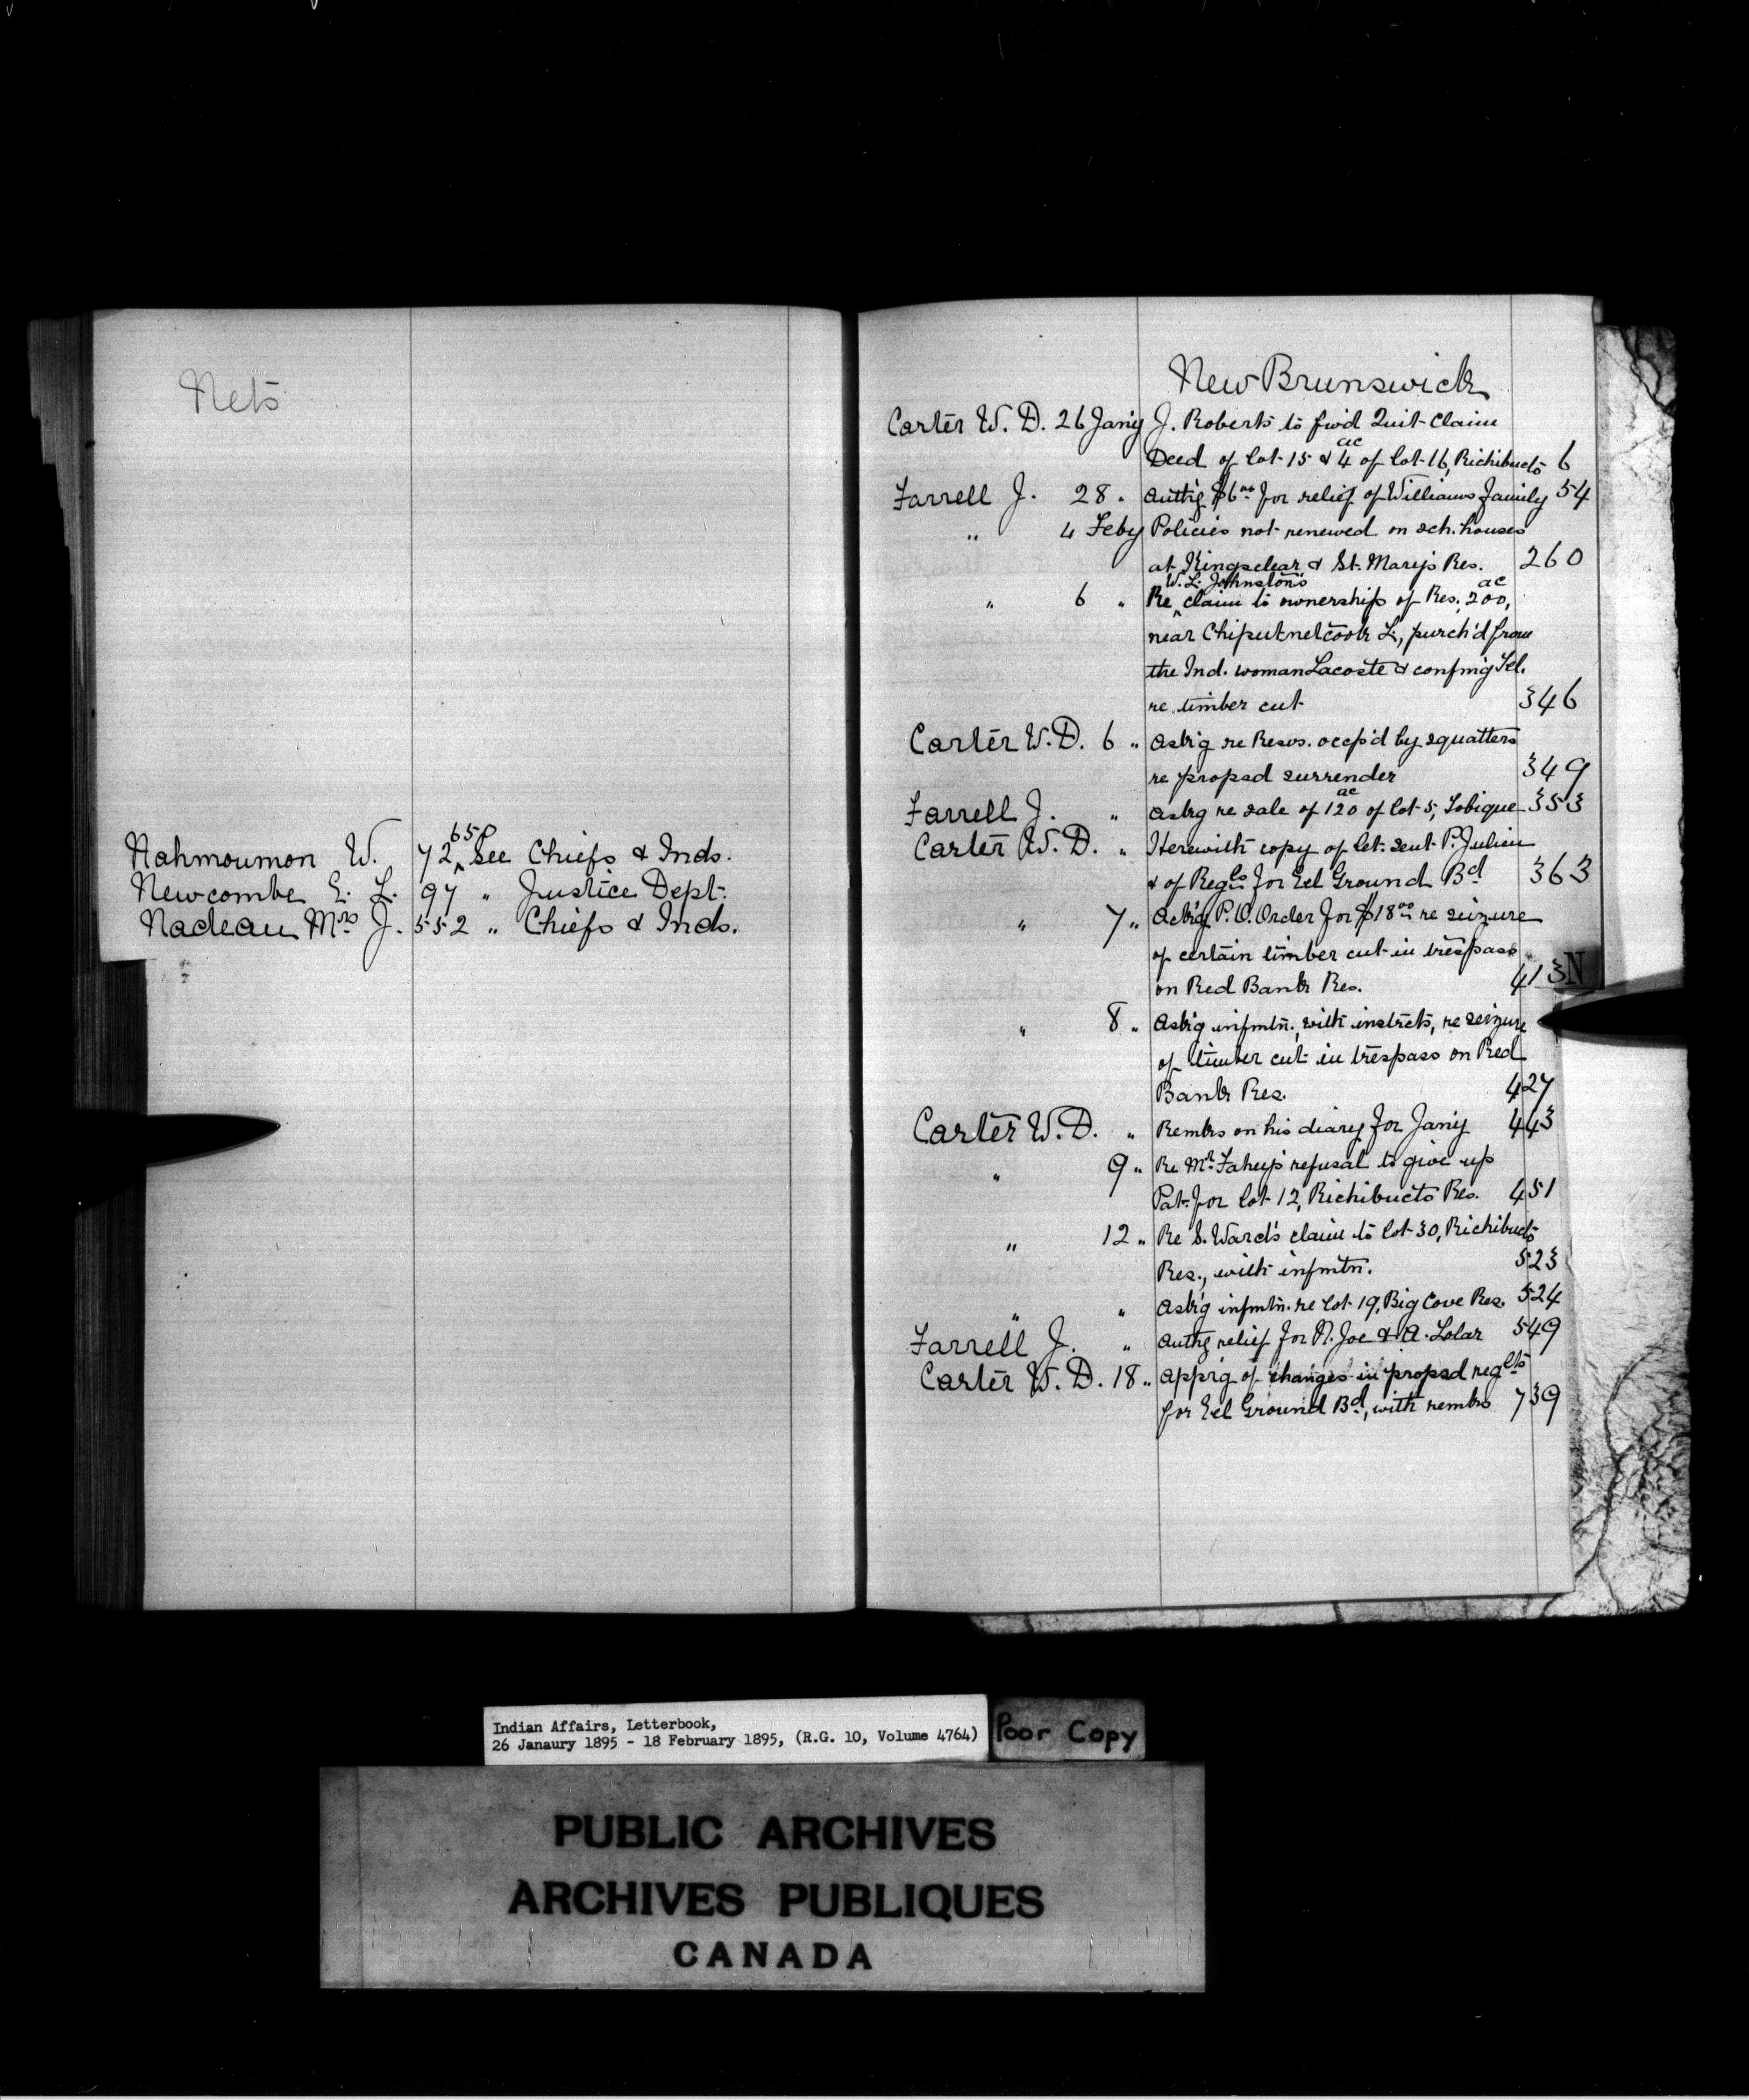 Nets
Nahmoumon W. 72, 65P See Chiefs & Inds.
Newcombe E. L. 97 " Justice Dept.
Nadeau Mrs J. 552 " Chiefs & Inds.
New Brunswick
Carter W. D. 26 Jan'y J. Roberts to fw'd Quit Claim
Deed of lot 15 & 4 ac of lot 16, Richibucto 6
Farrell J. 28 " Auth'g $6.00 for relief of Williams family 54
" 4 Feby Policies not renewed on sch. houses
at Kingsclear & St. Mary's Res. 260
" 6 " Re W. L. Johnston's claim to ownership of Res. 200 ac,
near Chiputnetcook L., purch'd from
the Ind. woman Lacoste & confm'g Tel.
re timber cut 346
Carter W. D. 6 " Ask'g re Resvs. occp'd by squatters
re propsd surrender 349
Farrell J. " Askg re sale of 120 ac of lot 5, Tobique 353
Carter W. D. " Herewith copy of let. sent P. Julien
& of Regls for Eel Ground Bd 363
" 7 " Ack'g P. O. Order for $18.00 re seizure
of certain timber cut in trespass
on Red Bank Res. 413
N
" 8 " Ask'g infmtn., with instrcts, re seizure
of timber cut in trespass on Red
Bank Res. 427
Carter W. D. " Remks on his diary for Jan'y 443
" 9 " Re Mr. Fahey's refusal to give up
Pat. for lot 12, Richibucto Res. 451
" 12 " Re S. Ward's claim to lot 30, Richibucto
Res., with infmtn. 523
" " Ask'g infmtn. re lot 19, Big Cove Res. 524
Farrell J. " Authg relief for N. Joe & A. Lolar 549
Carter W. D. 18 " Apprg of changes in propsd reglts
for Eel Ground Bd, with remks 739
Indian Affairs, Letterbook,
26 Janaury 1895 - 18 February 1895, (R.G. 10, Volume 4764)
Poor Copy
PUBLIC ARCHIVES
ARCHIVES PUBLIQUES
CANADA